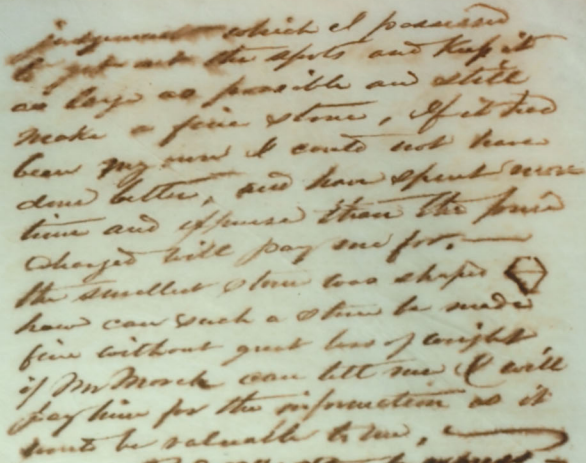 judgement which I possessed
to get out the spots and keep it
as large as possible and still
make a fine stone, If it had
been my own I could not have
done better, and have spent more
time and expense than the price
charged will pay me for.
the smallest stone was shaped
how can such a stone be made
fine without great loss of weight,
if Mr Morck can tell me I will
pay him for the information as it
would be valuable to me,